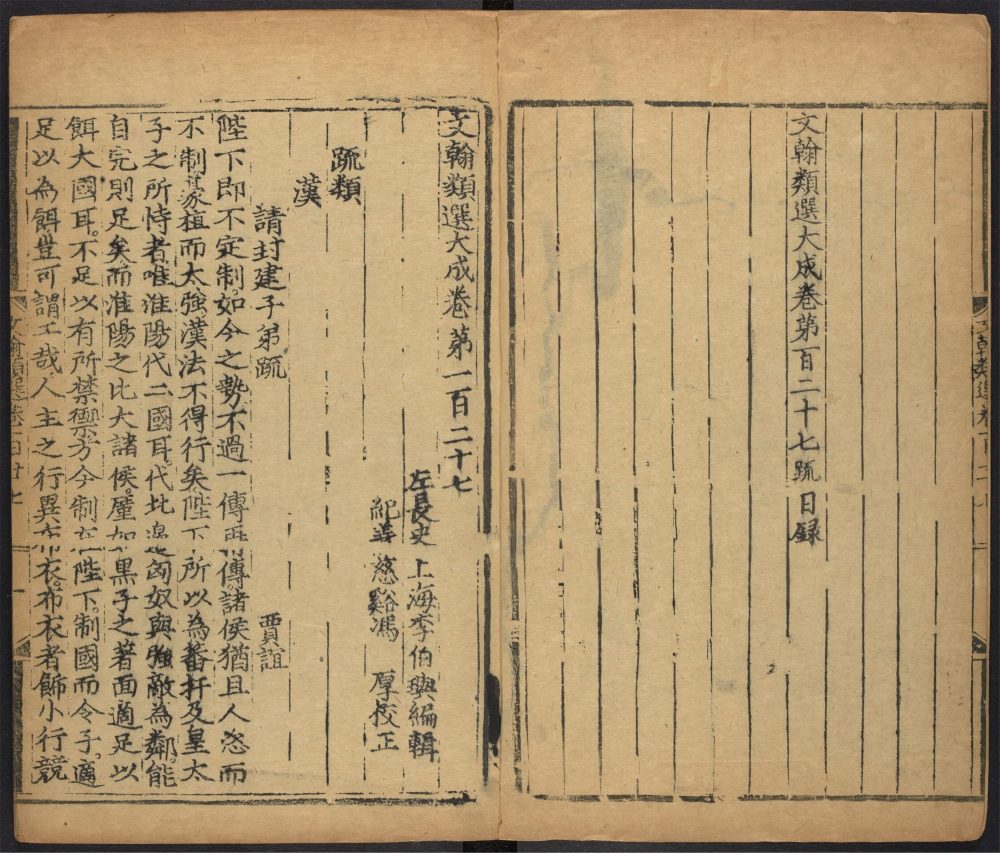 文翰類選大成卷第百二十七䟽目録
文翰類選大成卷第一百二十七
左長史上海李伯璵編輯
紀善慈谿馮厚校正
䟽類
漢
請封建子弟䟽
賈誼
陛下即不定制。如今之勢不過一傳再傳。諸侯猶且人恣而
不制。豪植而太強。漢法不得行矣陛下所以為蕃扞及皇太
子之所恃者。唯淮陽代二國耳。代北邊匈奴與強敵為鄰。能
自完則足矣。而淮陽之比大諸侯。廑如黑子之著面適足以
餌大國耳。不足以有所禁禦。方今制在陛下。制國而令子。適
足以為餌豈可謂工哉。人主之行異布衣。布衣者飾小行競